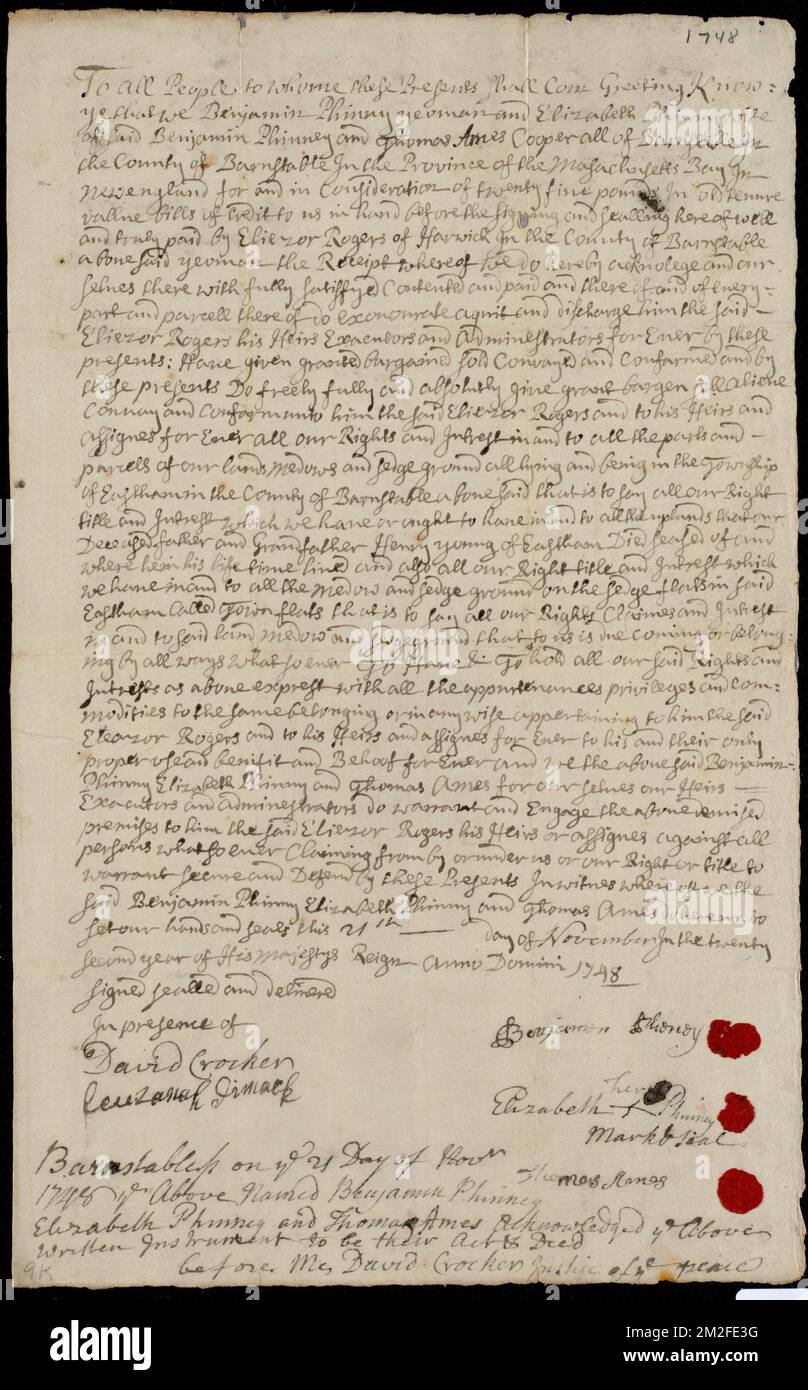 1748
To All People to whome these Presents shall Com Greeting Know=
ye that we Benjamin Phinny yeoman and Elizabeth Phinny wife
of said Benjamin Phinney and Thomas Ames Cooper all of Barnstable in
the County of Barnstable In the Province of the Masachusetts Bay In
newengland for and in Consideration of twenty five pounds In old tenure
vallue bills of Credit to us in hand before the signing and sealling here of well
and truly paid by Eliezor Rogers of Harwick In the County of Barnstable
aboue said yeoman the Receipt where of we do hereby acknolege and our
selues there with fully satisfyed Contented and paid and there of and of euery-
part and parcell there of do exonourate aquit and discharge him the said -
Eliezor Rogers his Heirs Exacutors and Administrators for Euer by these
presents: Haue giuen granted bargained sold Conuayed and Confarmed and by
these presents Do freely fully and absolutly giue grant bargen sell aliene
Conuay and Confarm unto him the said Eliezor Rogers and to his Heirs and
assignes for Euer all our Rights and Intrest in and to all the parts and -
parcels of our lands medows and sedge ground all lying and being in the Township
of Eastham in the County of Barnstable aboue said that is to say all our Right
title and Intrest which we haue or ought to haue in and to all the uplands that our
Deceased father and Grandfather Henry young of Eastham Died seased of and
where he in his life time liued and also all our Right title and Intrest which
we haue in and to all the medow and sedge ground on the sedge flats in said
Eastham Called Town flats that is to say all our Rights Claimes and Intrest
in and to said land medow and sedge ground that to us is due coming or belong-
ing by all ways what so euer To Haue & To hold all our said Rights and
Intrests as aboue exprest with all the appurtenances priuileges and com-
modities to the same belonging or in any wise appertaining to him the said
Eleazor Rogers and to his Heirs and assignes for Euer to his and their only
proper use and benifit and Behoof for Euer and we the aboue said Benjamin-
Phinny Elizabeth Phinny and Thomas Ames for our selues our Heirs -
Exacutors and administrators do warrant and Engage the aboue demised
premises to him the said Eliezor Rogers his Heirs or assignes against all
persons what so euer Claiming from by or under us or our Right or title to
warrant secure and Defend by these Presents In witnes where of we the
said Benjamin Phinny Elizabeth Phinny and Thomas Ames where unto
set our hands and seals this 21th day of Nouember In the twenty
second year of His majestys Reign Anno Domini 1748
signed sealled and deliuered
In presence of
David Crocker
Dimack
Benjamin Phiney
her
Elizabeth + Phinney
Mark & seal
Thomas Ames
Barnstable ss on ye 21 Day of Novr
1748 ye Above Named Benjamin Phinney
Elizabeth Phinney and Thomas Ames Acknowledged ye Above
written Instrument to be their Act & Deed
before Me David Crocker Justice of ye peace
9K
alamy
Image ID: 2M2FE3G
www.alamy.com